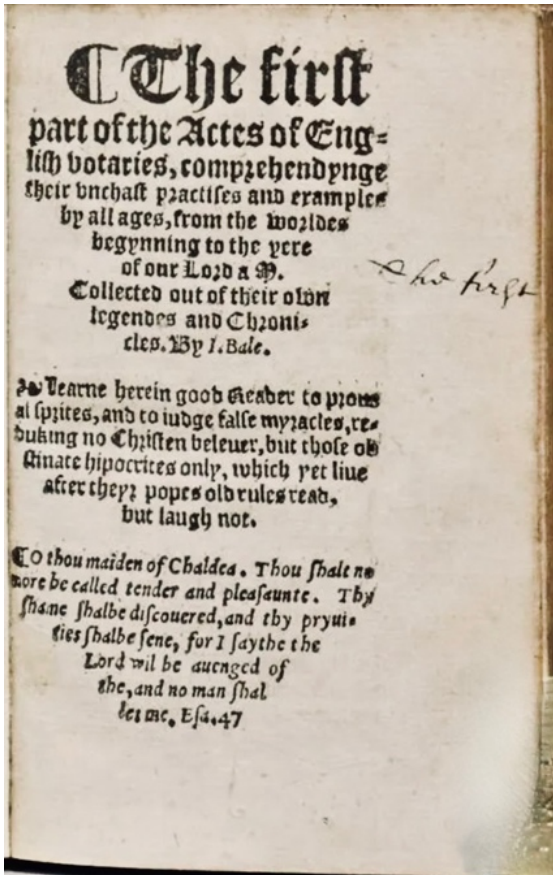 ¶ The firſt
part of the Actes of Eng=
liſh votaries, comprehendynge
their vnchaſt practiſes and examples
by all ages, from the worldes
begynning to the yere
of our Lord a M.
Collected out of their own
legendes and Chroni=
cles. By I. Bale.
the firſt
❧ Learne herein good Reader to proue
al ſprites, and to iudge falſe myracles, re=
buking no Chriſten beleuer, but thoſe ob
ſtinate hipocrites only, which yet liue
after theyr popes old rules read,
but laugh not.
¶ O thou maiden of Chaldea. Thou ſhalt no
more be called tender and pleaſaunte. Thy
ſhame ſhalbe diſcouered, and thy pryui=
ties ſhalbe ſene, for I ſaythe the
Lord wil be auenged of
the, and no man ſhal
let me. Eſa. 47